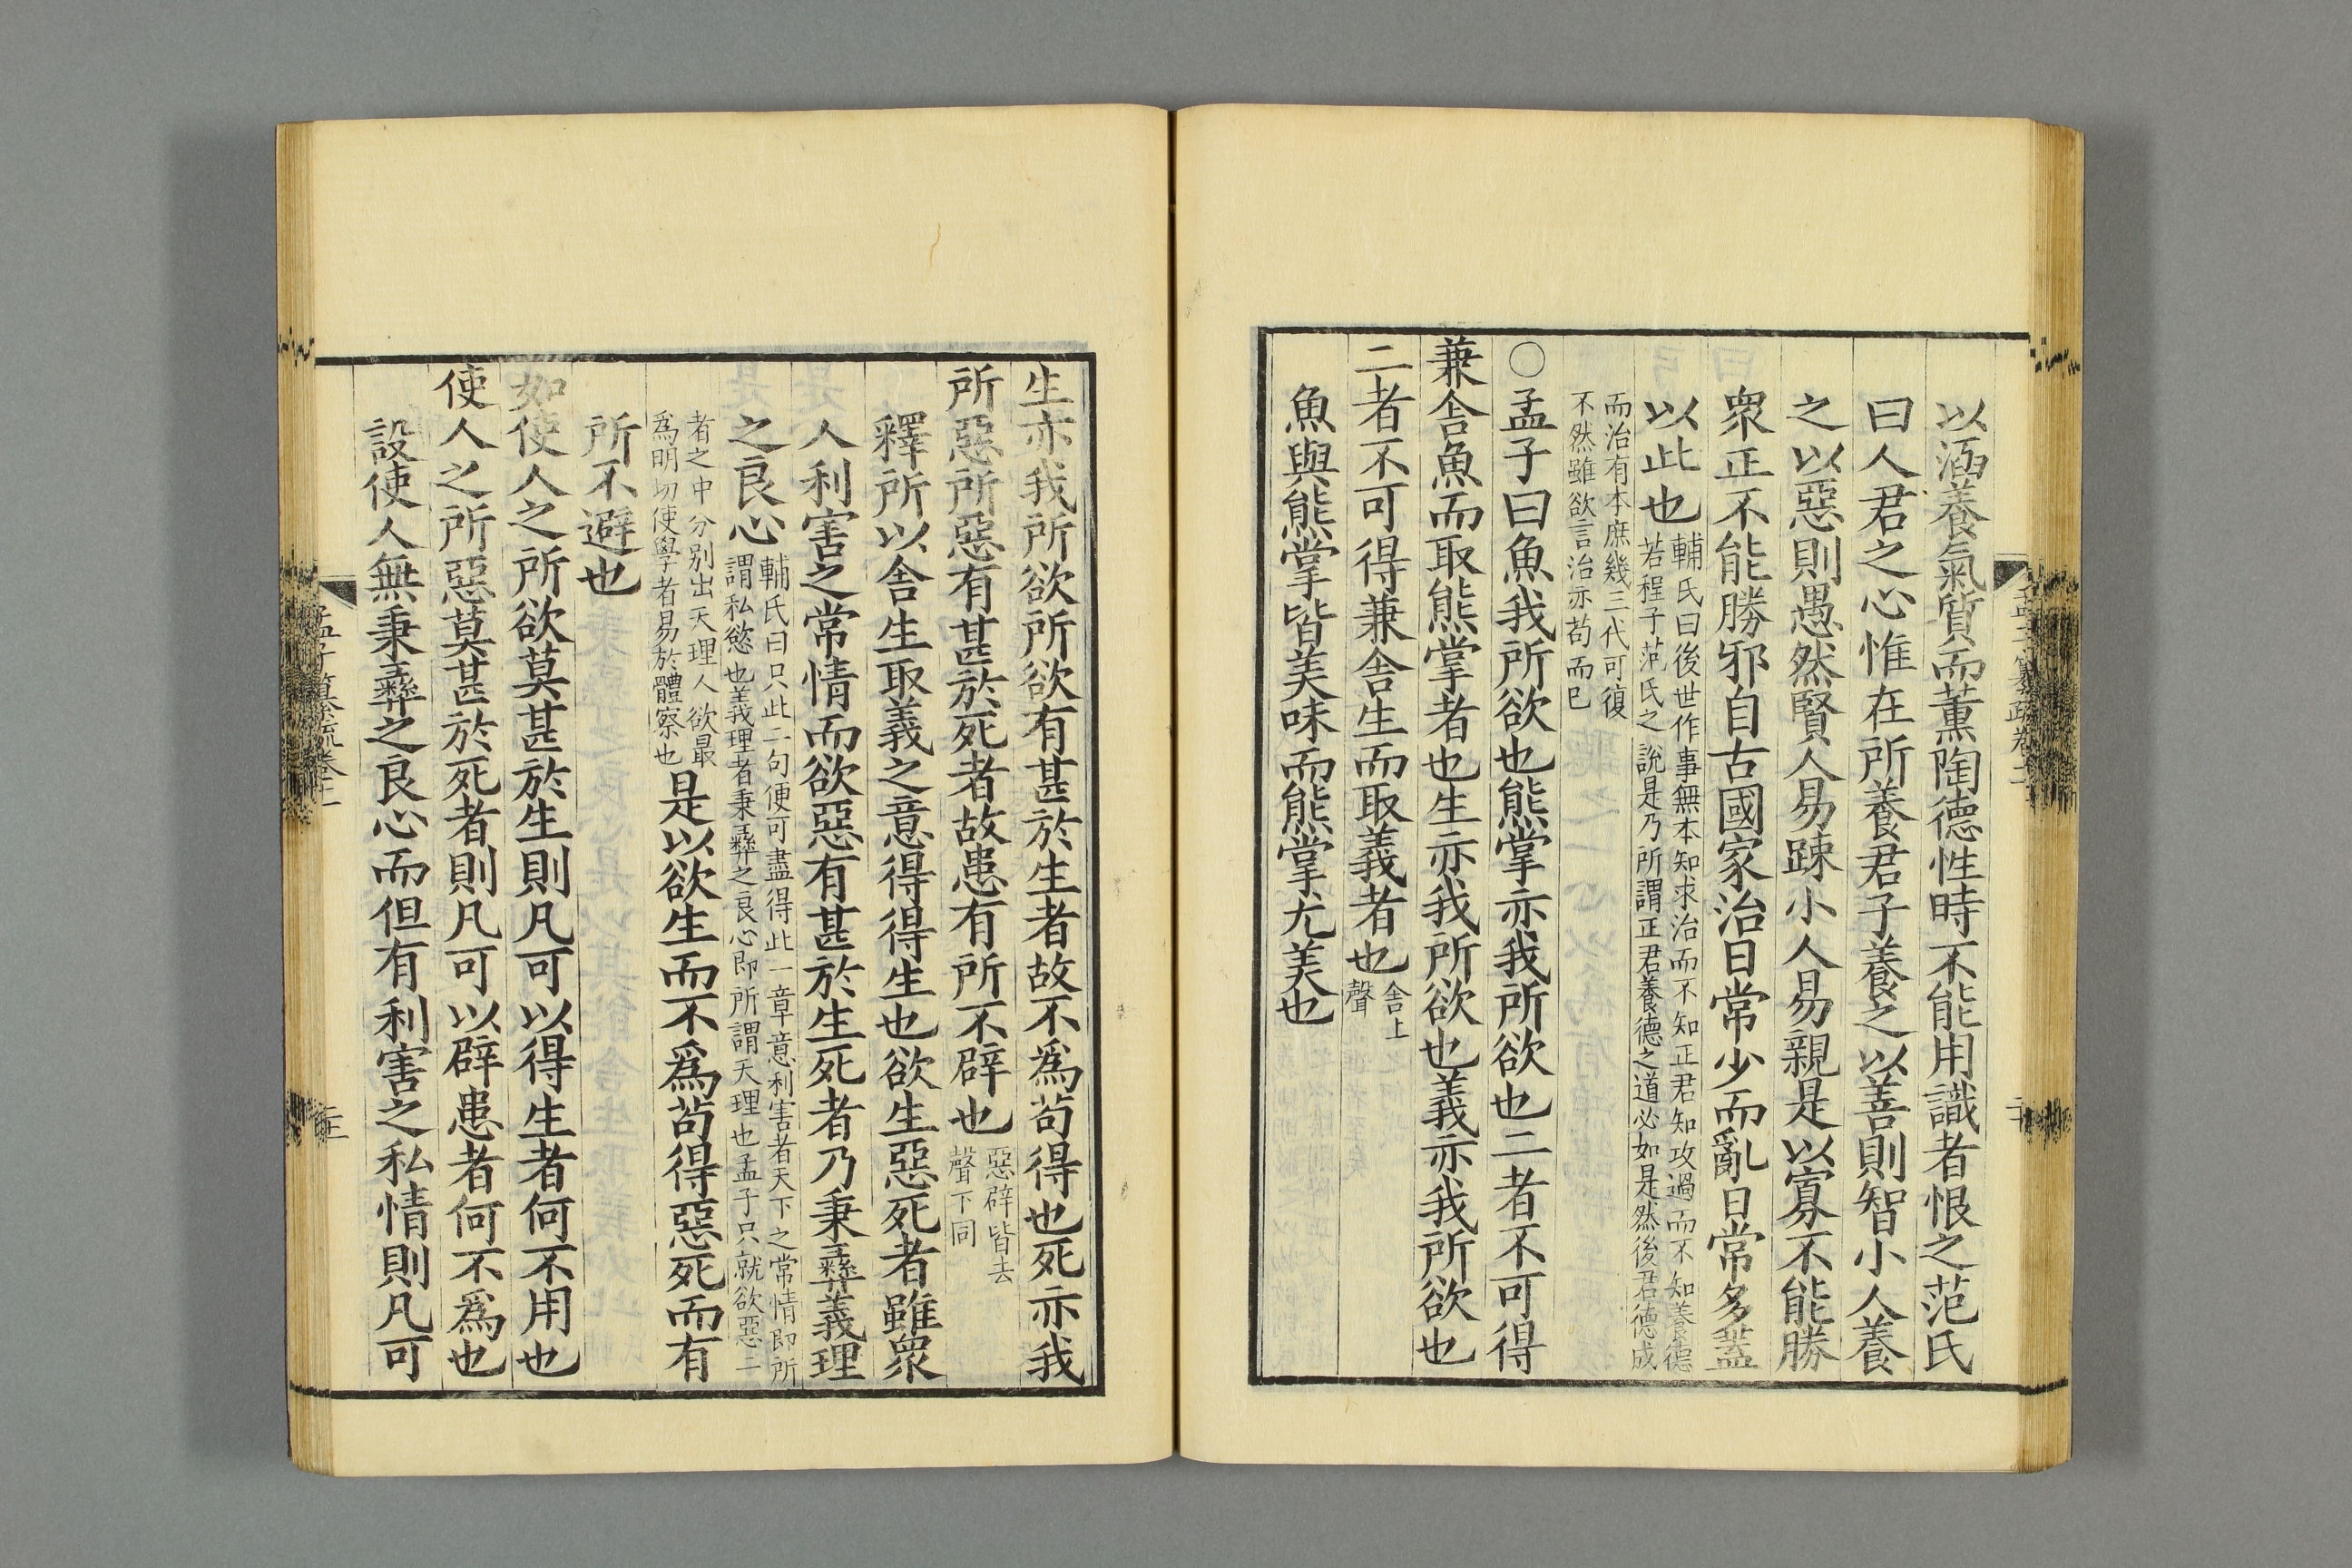 以涵養氣質而薰陶德性時不能用識者恨之范氏
曰人君之心惟在所養君子養之以善則智小人養
之以惡則愚然賢人易踈小人易親是以寡不能勝
衆正不能勝邪自古國家治日常少而亂日常多蓋
以此也
輔氏曰後世作事無本知求治而不知正君知攻過而不知養德
若程子范氏之說是乃所謂正君養德之道必如是然後君德成
而治有本庶幾三代可復
不然雖欲言治亦苟而已
○孟子曰魚我所欲也熊掌亦我所欲也二者不可得
兼舍魚而取熊掌者也生亦我所欲也義亦我所欲也
二者不可得兼舍生而取義者也
舍上
聲
魚與熊掌皆美味而熊掌尤美也
生亦我所欲所欲有甚於生者故不爲苟得也死亦我
所惡所惡有甚於死者故患有所不辟也
惡辟皆去
聲下同
釋所以舍生取義之意得得生也欲生惡死者雖衆
人利害之常情而欲惡有甚於生死者乃秉彞義理
之良心
輔氏曰只此二句便可盡得此一章意利害者天下之常情即所
謂私慾也義理者秉彞之良心即所謂天理也孟子只就欲惡二
者之中分别出天理人欲最
爲明切使學者易於體察也
是以欲生而不爲苟得惡死而有
所不避也
如使人之所欲莫甚於生則凡可以得生者何不用也
使人之所惡莫甚於死者則凡可以辟患者何不爲也
設使人無秉彞之良心而但有利害之私情則凡可